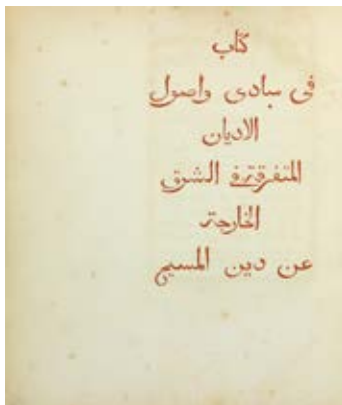 كتاب
فى مبادى واصول
الاديان
المتفرقة فى الشرق
الخارجة
عن دين المسيح